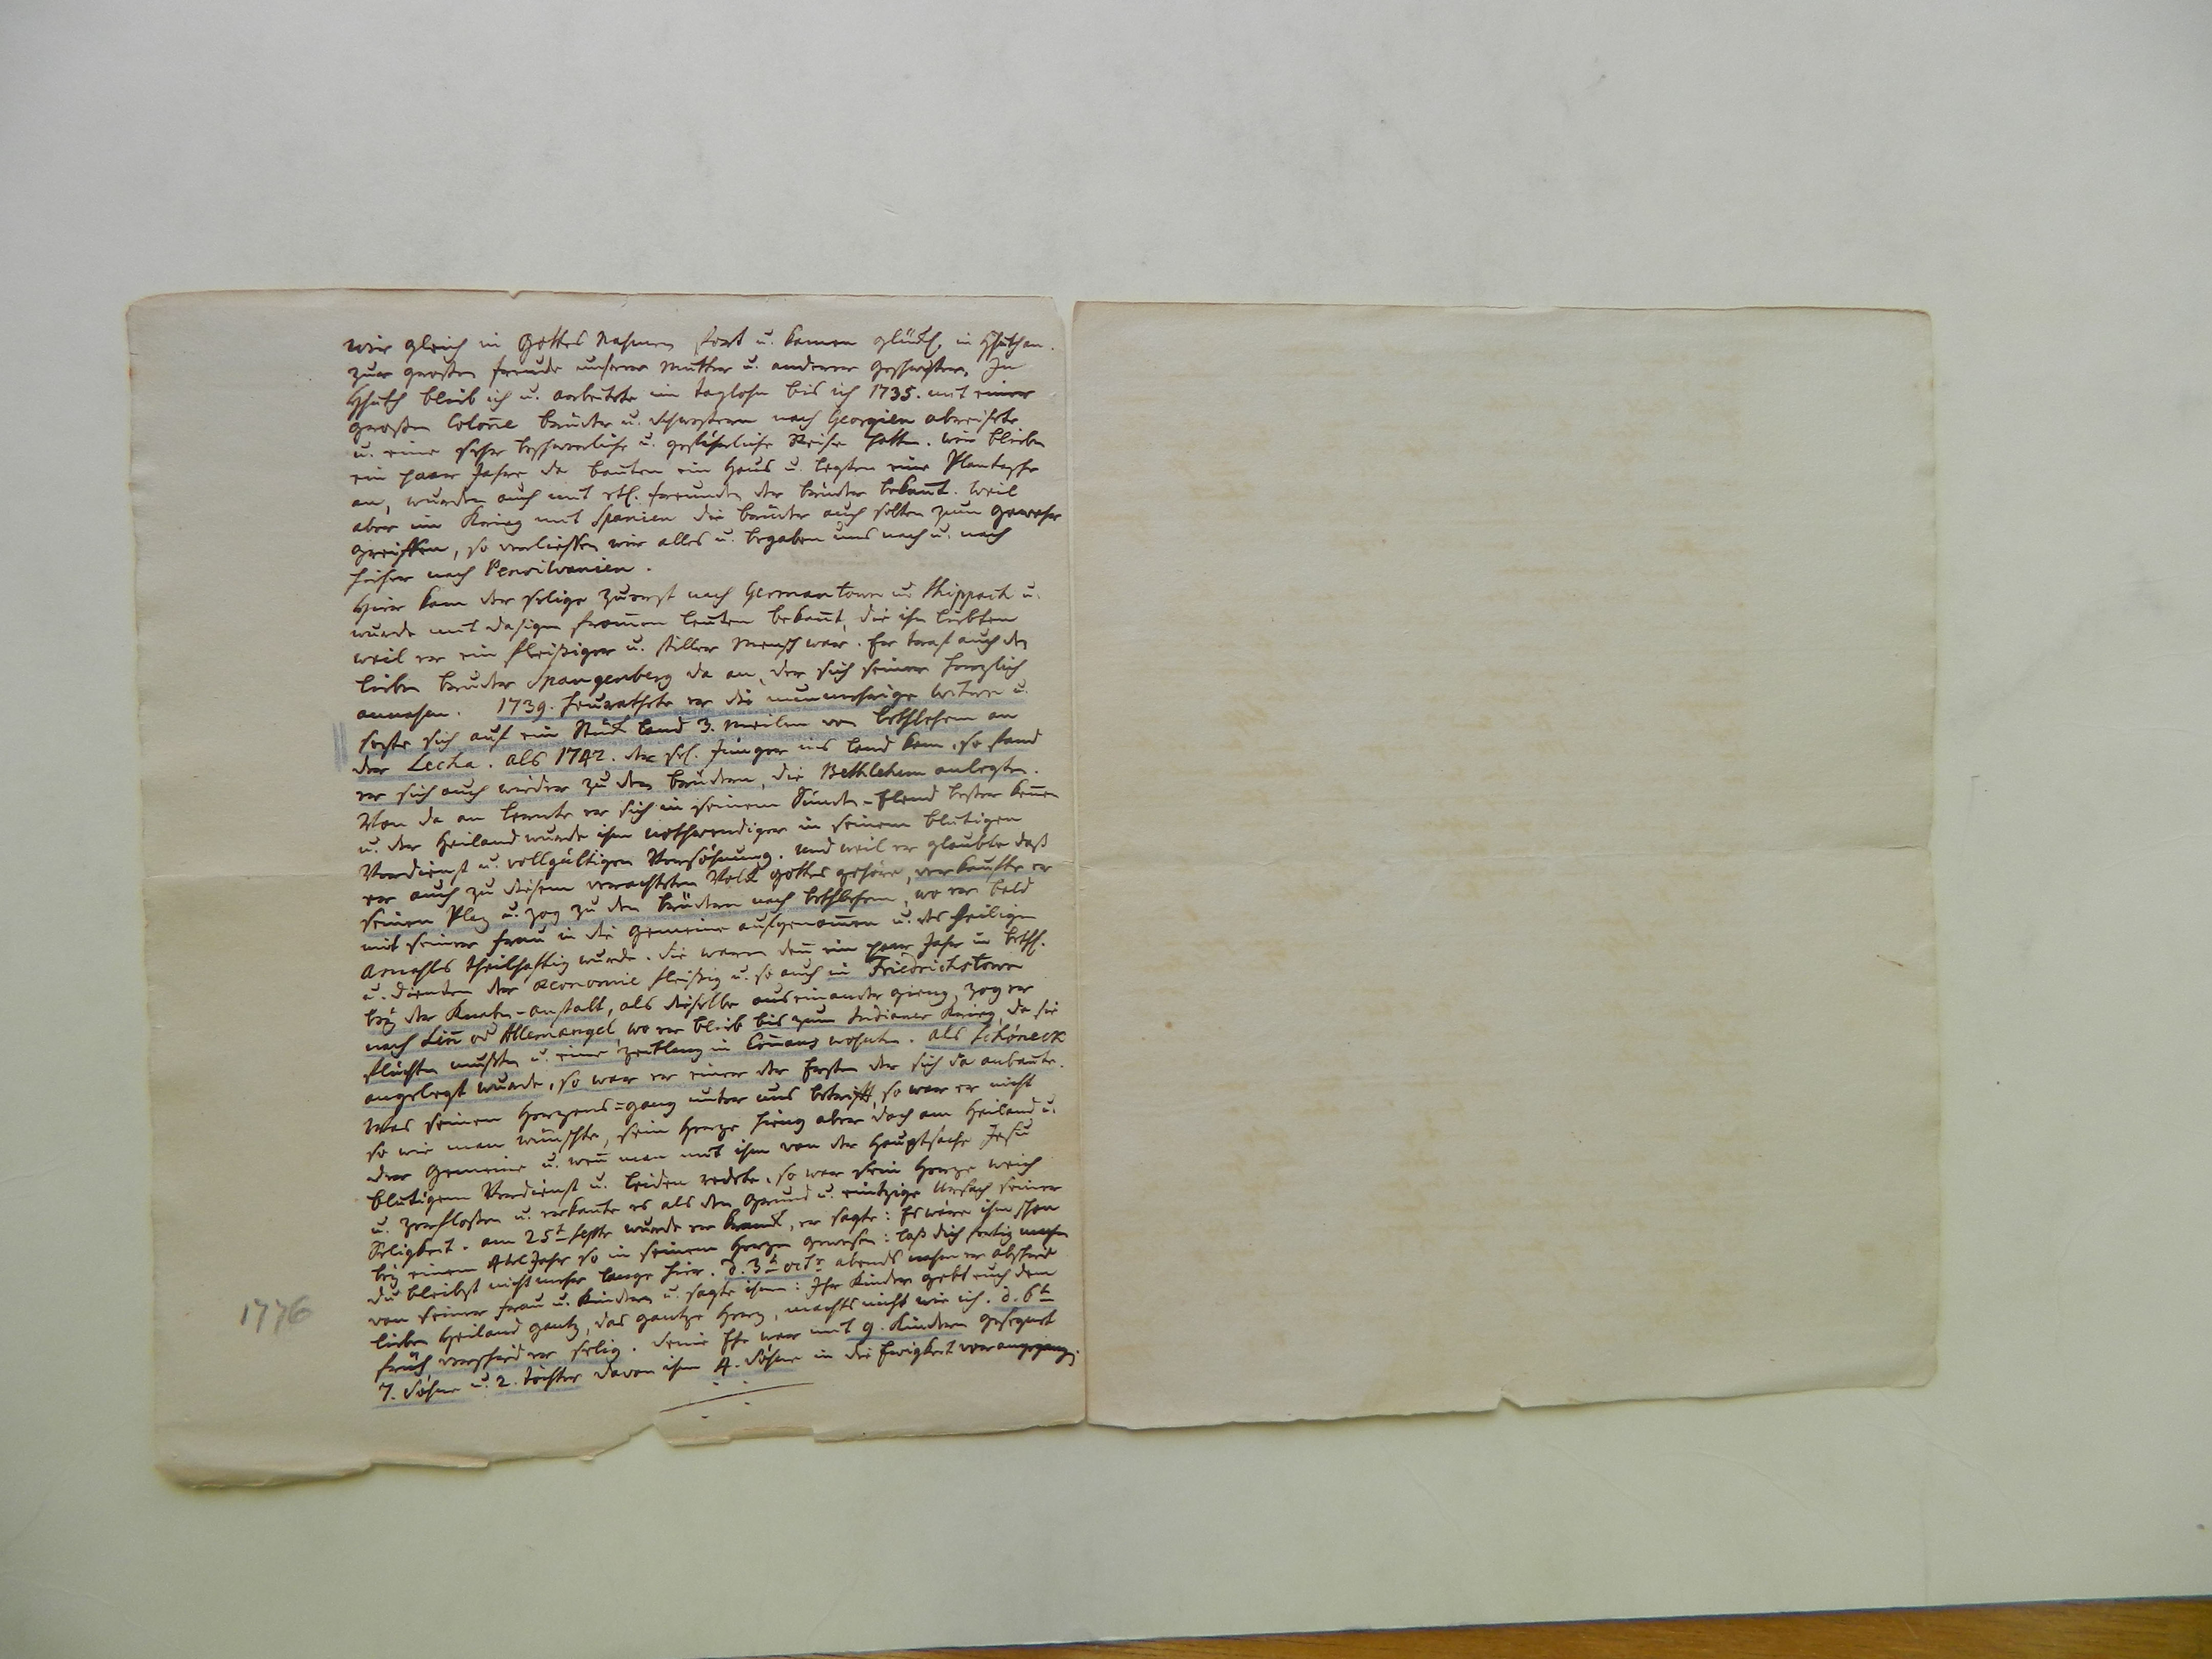 wir gleich in Gottes Nahmen fort u. kamen glückl. in Hhuth an.
zur grosten freude unserer Mutter u. anderer Geschwister. In
Hhuth blieb ich u. arbeitete im taglohn bis ich 1735. mit einer
grosen Colonie brüder u. Schwestern nach Georgien abreisete
u. eine sehr beschwerliche u. gefährliche Reise hatten. wir blieben
ein paar Jahre da bauten ein Haus u. legten eine Plantasche
an, wurden auch mit etl. freunden der brüder bekant. weil
aber im Krieg mit Spanien die brüder auch solten zum gewehr
greiffen, so verliessen wir alles u. begaben uns nach u. nach
hieher nach Pensilvanien.
Hier kam der selige zuerst nach Germantown u. Skippach u.
wurde mit dasigen fromen leuten bekant, die ihn liebten
weil er ein fleisiger u. stiller Mensch war. Er traf auch den
lieben bruder Spangenberg da an, der sich seiner herzlich
annahm. 1739. heurathete er die nunmehrige witwe u.
sezte sich auf ein Stück land 3. Meilen von bethlehem an
der Lecha. als 1742. der sel. Jünger ins land kam, so fand
er sich auch wieder zu den brüdern, die Bethlehem anlegten.
Von da an lernte er sich in seinem Sünden-Elend besser kennen
u. der Heiland wurde ihm nothwendiger in seinem blutigen
Verdienst u. vollgültigen Versöhnung. und weil er glaubte daß
er auch zu diesem verachteten Volk gottes gehöre, verkaufte er
seinen Plaz u. zog zu den brüdern nach bethlehem, wo er bald
mit seiner frau in die gemeine aufgenomen u. des heiligen
Abmahls theilhaftig wurde. Sie waren deñ ein paar Jahr in bethl.
u. dienten der oeconomie fleisig u. so auch in Friedrichstown
bey der Knaben-anstalt, als dieselbe auseinander gieng, zog er
nach Liñ od Allemaengel, wo er blieb bis zum Indianer Krieg, da sie
flüchten musten u. eine zeitlang in Emaus wohnten. als Schöneck
angelegt wurde, so war er einer der Ersten der sich da anbaute.
Was seinen Herzens=gang unter uns betrift, so war er nicht
so wie man wünschte, sein Herze hieng aber doch am Heiland u.
der Gemeine u. weñ man mit ihm von der Hauptsache Jesu
blutigem Verdienst u. leiden redete, so war sein Herze weich
u. zerflossen u. erkante es als den grund u. eintzige Ursach seiner
Seligkeit. am 25t Septr wurde er krank, er sagte: Es wäre ihm schon
bey einem Jahr so in seinem Herzen gewesen: laß dich fertig machen
du bleibst nicht mehr lange hier. d. 3t octr abends nahm er abschied
von seiner frau u. Kindern u. sagte ihnen: Ihr Kinder gebt euch dem
lieben Heiland gantz, das gantze Herz, machts nicht wie ich. d. 6t
früh verschied er selig. Seine Ehe war mit 9. Kindern gesegnet
7. Söhne u. 2. töchter davon ihm 4. Söhne in die Ewigkeit vorangegangen
1776